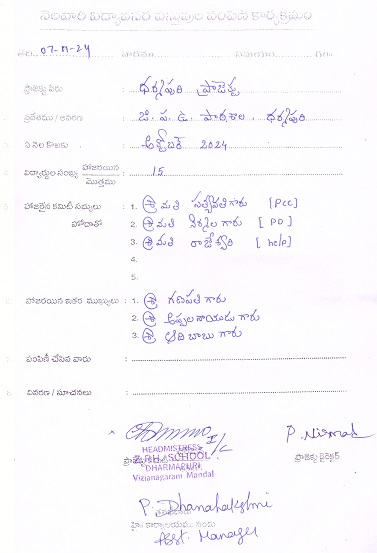 నెలవారీ విద్యావసర వస్తువుల పంపిణీ కార్యక్రమం
తేది. 07-11-24 వారము సమయం గం॥
1. ప్రాజెక్టు పేరు : ధర్మపురి ప్రాజెక్టు
ప్రదేశము / ఆవరణ : జి. ప. ఉ. పాఠశాల. ధర్మపురి
3. ఏ నెల కొఱకు : అక్టోబర్ 2024
4. విద్యార్థుల సంఖ్య హాజరయిన / మొత్తము : 15
5. హాజరైన కమిటీ సభ్యులు హోదాతో : 1. శ్రీ మతి సత్యవతి గారు [PCC]
2. శ్రీ మతి నిర్మల గారు [PD]
3. శ్రీ మతి రాజేశ్వరి [help]
4.
5.
6. హాజరయిన ఇతర ముఖ్యులు : 1. శ్రీ గణపతి గారు
2. శ్రీ అప్పలనాయుడు గారు
3. శ్రీ ఆది బాబు గారు
7. పంపిణీ చేసిన వారు :
8. వివరణ / సూచనలు :
I/C
P. Nirmal
HEADMISTRESS
Z.P.H.SCHOOL
DHARMAPURI
Vizianagaram Mandal
ప్రాజెక్టు డైరెక్టర్
P. Dhanalakshmi
హై కార్యాలయము నుంచి
Asst. Manager